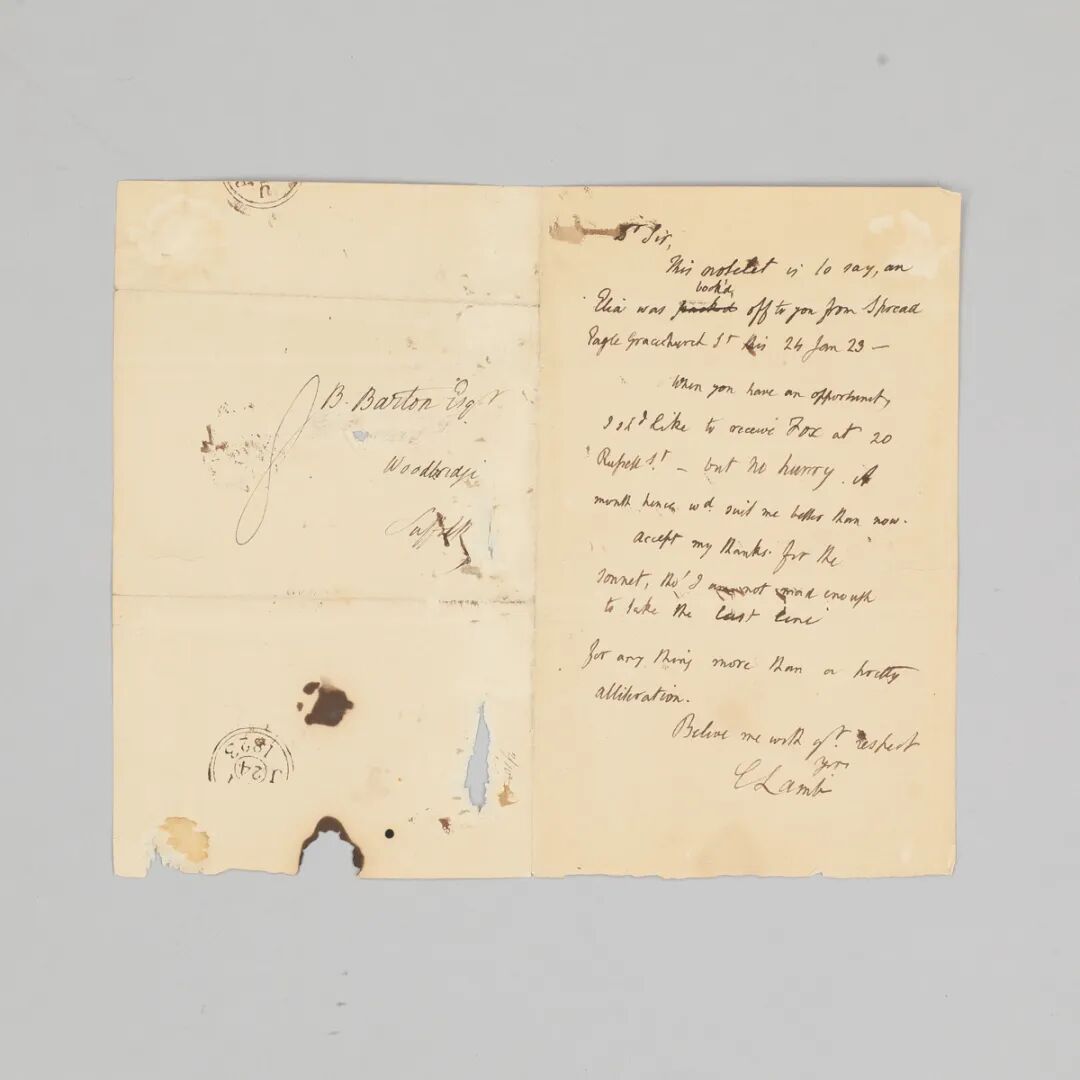 B. Barton Esqr
Woodbridge
Suffolk
J
24
1823
Dr Sir,
This notelet is to say, an
book'd
Elia was packed off to you from Spread
Eagle Gracechurch St this 24 Jan 23 —
When you have an opportunity
I shd like to receive Fox at 20
Russell St. — but no hurry. A
month hence wd. suit me better than now.
Accept my thanks for the
sonnet, tho' I am not mad enough
to take the last line
for any thing more than a pretty
alliteration.
Believe me with gt. respect
Yrs
C Lamb